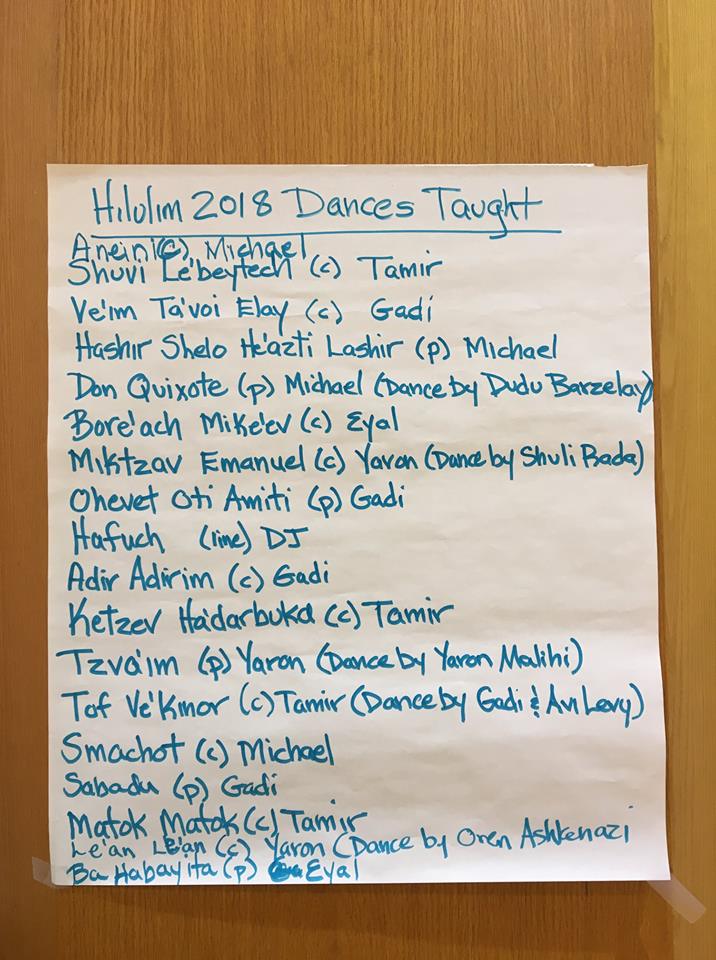 Hilulim 2018 Dances Taught
Aneini (c) Michael
Shuvi Le'beytech (c) Tamir
Ve'im Ta'voi Elay (c) Gadi
Hashir Shelo He'azti Lashir (p) Michael
Don Quixote (p) Michael (Dance by Dudu Barzelay)
Bore'ach Mike'ev (c) Eyal
Miktzav Emanuel (c) Yaron (Dance by Shuli Rada)
Ohevet Oti Amiti (p) Gadi
Hafuch (line) DJ
Adir Adirim (c) Gadi
Ketzev Ha'darbuka (c) Tamir
Tzva'im (p) Yaron (Dance by Yaron Malihi)
Tof Ve'Kinor (c) Tamir (Dance by Gadi & Avi Levy)
Smachot (c) Michael
Sabadu (p) Gadi
Matok Matok (c) Tamir
Le'an Le'an (c) Yaron (Dance by Oren Ashkenazi
Ba Habayita (p) Eyal